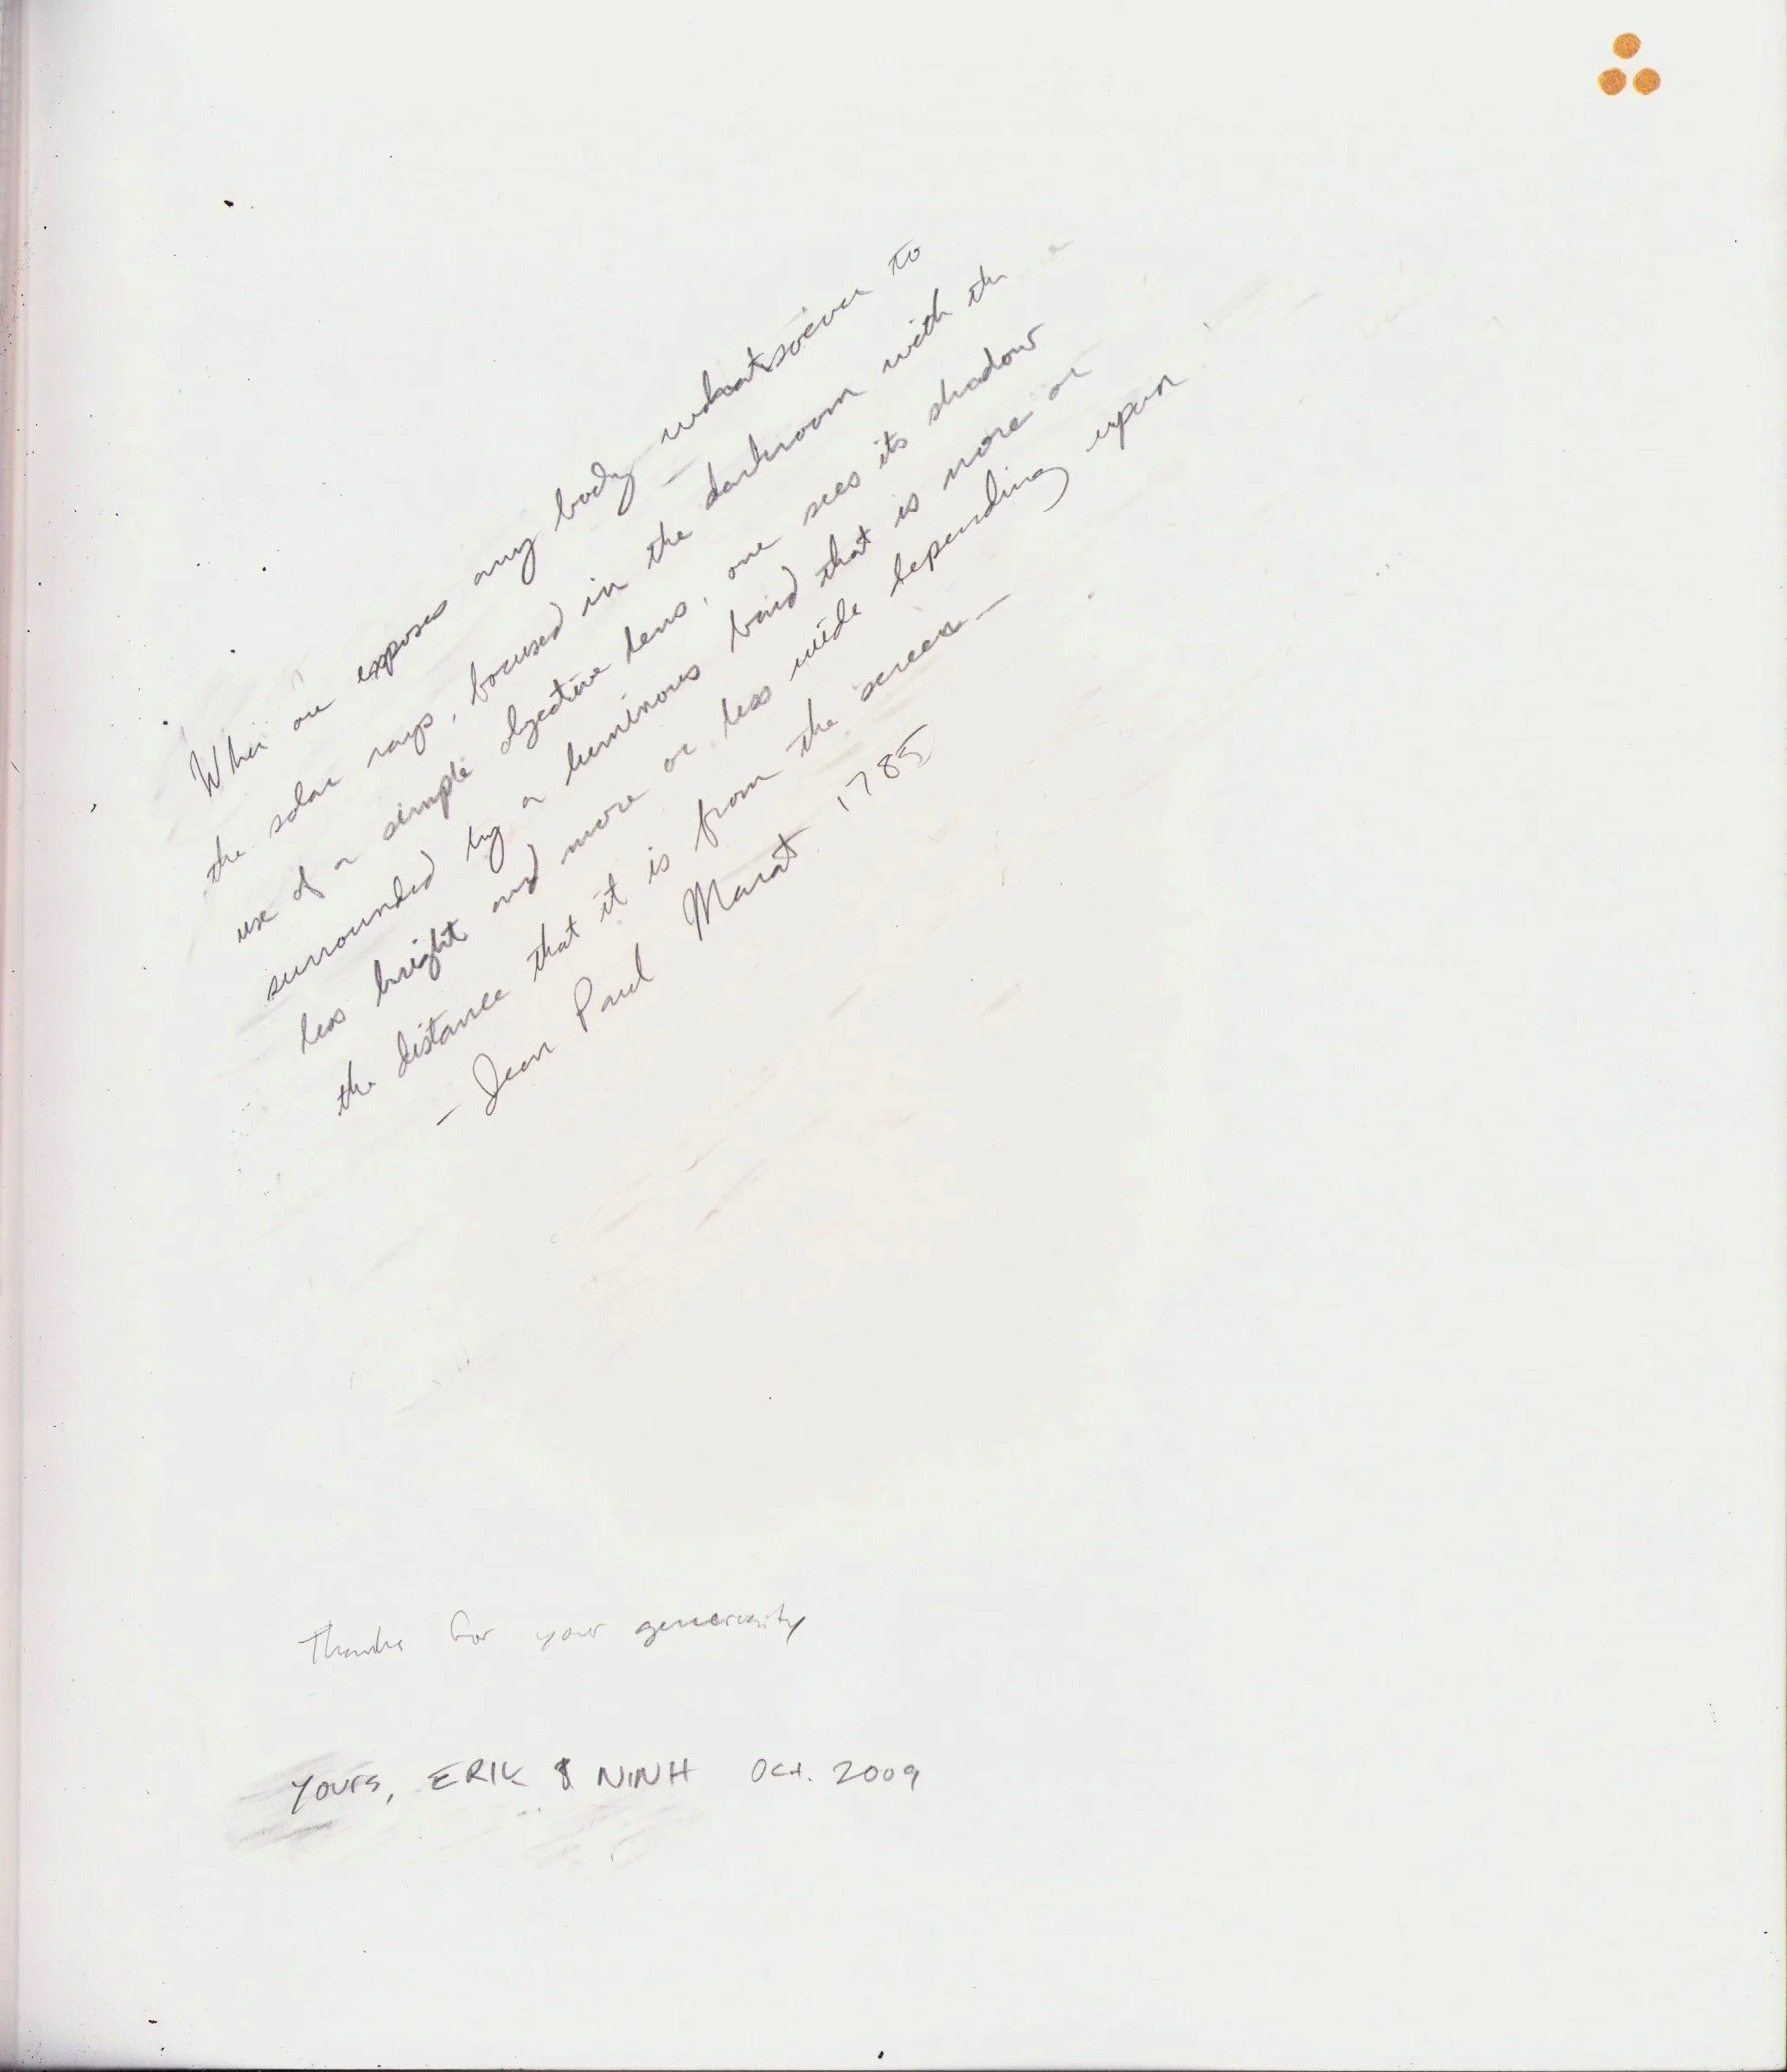 When one exposes any body whatsoever to
the solar rays, focused in the darkroom with the
use of a simple objective lens, one sees its shadow
surrounded by a luminous band that is more or
less bright and more or less wide depending upon
the distance that it is from the screen—
— Jean Paul Marat 1785
Thanks for your generosity
YOURS, ERIK & NINH Oct. 2009